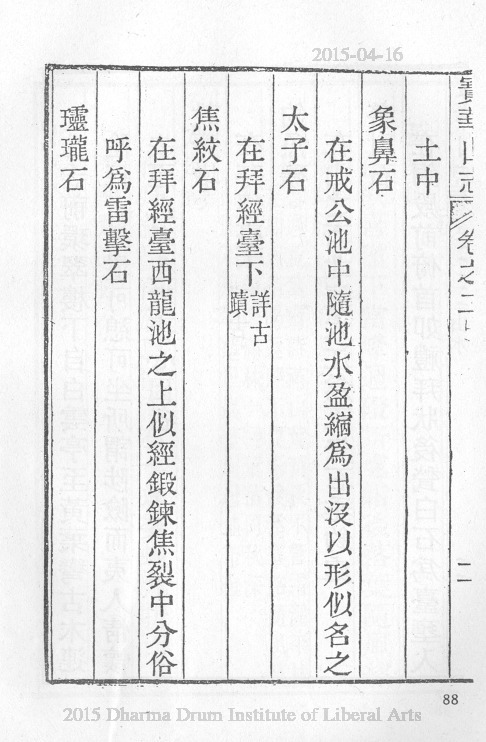 2015-04-16
寶華山志
卷之二
二
土中
象鼻石
在戒公池中隨池水盈縮爲出沒以形似名之
太子石
在拜經臺下詳古蹟
焦紋石
在拜經臺西龍池之上似經鍛鍊焦裂中分俗
呼爲雷擊石
瓏石
88
2015 Dharma Drum Institute of Liberal Arts